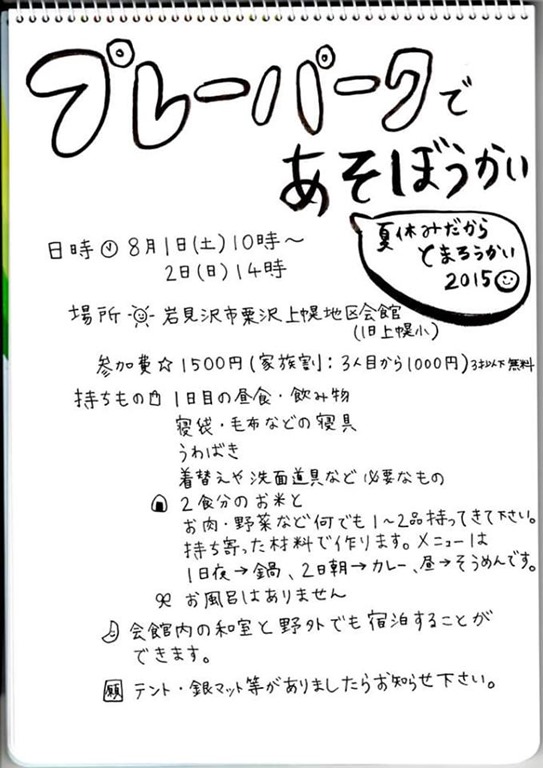 プレーパークで
あそぼうかい
夏休みだから
とまろうかい
2015
日時 8月1日(土)10時〜
2日(日)14時
場所 岩見沢市栗沢上幌地区会館
(旧上幌小)
参加費☆1500円(家族割:3人目から1000円)3才以下無料
持ちもの 1日目の昼食・飲み物
寝袋・毛布などの寝具
うわばき
着替えや洗面道具など必要なもの
2食分のお米と
お肉・野菜など何でも1〜2品持ってきて下さい。
持ち寄った材料で作ります。メニューは
1日夜→鍋、2日朝→カレー、昼→そうめんです。
お風呂はありません
会館内の和室と野外でも宿泊することが
できます。
願 テント・銀マット等がありましたらお知らせ下さい。